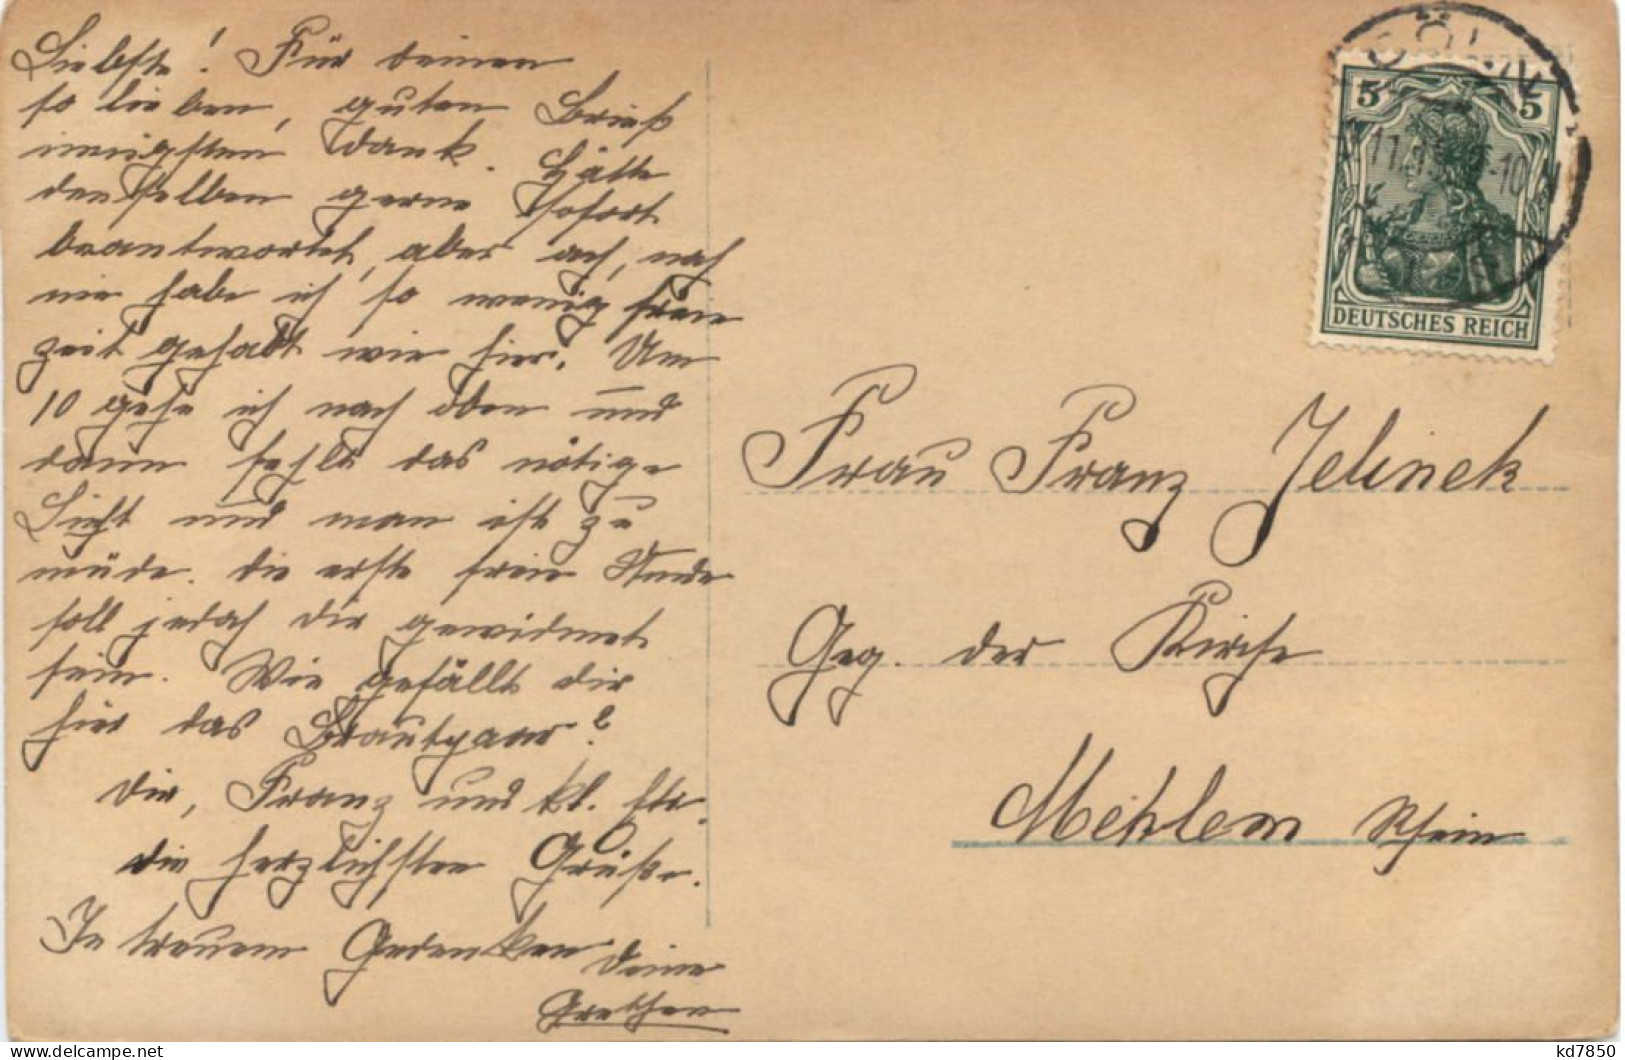 Liebste! Für deinen
so lieben, guten Brief
innigsten Dank. Hätte
denselben gerne sofort
beantwortet, aber ach, noch
nie habe ich so wenig freie
Zeit gehabt wie hier. Um
10 gehe ich nach oben und
dann fehlt das nötige
Licht und man ist zu
müde. Die erste freie Stunde
soll jedoch dir gewidmet
sein. Wie gefällt dir
hier das Brautpaar?
Dir, Franz und kl.
die herzlichsten Grüße.
In treuem Gedenken Deine
Gretchen
5 5
DEUTSCHES REICH
Frau Franz Jelinek
Geg. der Kirche
Mehlem Rhein
kd7850